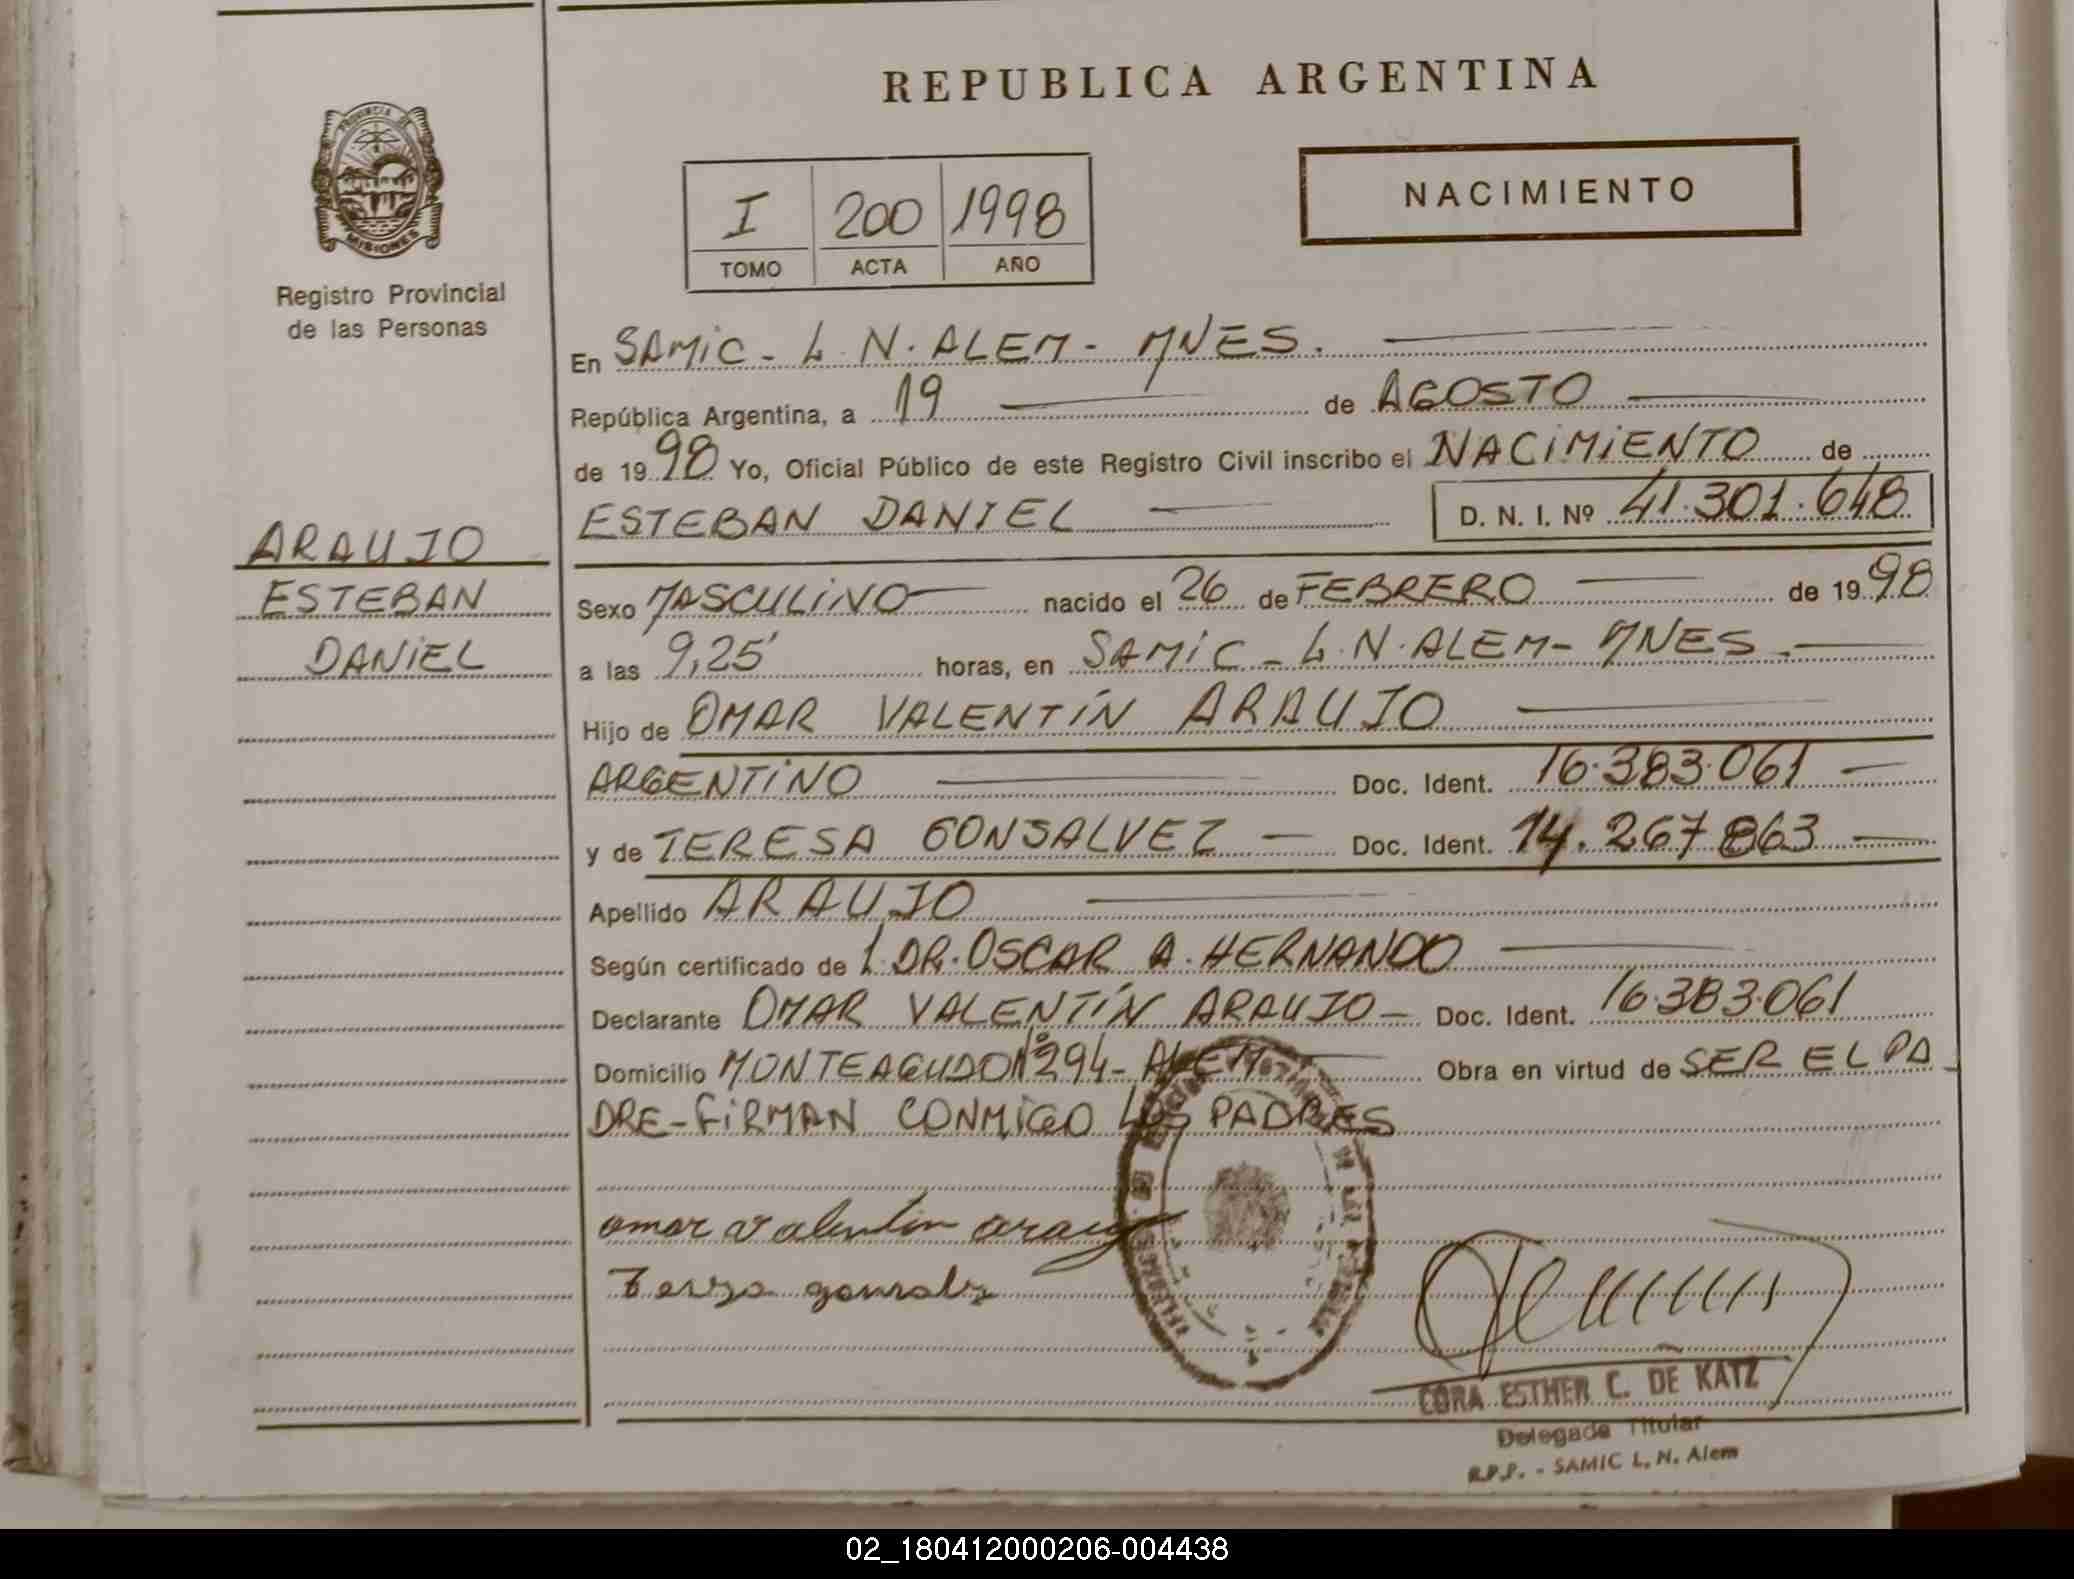 REPUBLICA ARGENTINA
PROVINCIA DE
MISIONES
Registro Provincial
de las Personas
NACIMIENTO
I 200 1998
TOMO ACTA AÑO
En SAMIC - L. N. ALEM - MNES.
República Argentina, a 19 de AGOSTO
de 1998 Yo, Oficial Público de este Registro Civil inscribo el NACIMIENTO de
ESTEBAN DANIEL D. N. I. Nº 41.301.648
ARAUJO
ESTEBAN
DANIEL
Sexo MASCULINO nacido el 26 de FEBRERO de 1998
a las 9,25' horas, en SAMIC - L. N. ALEM - MNES.
Hijo de OMAR VALENTÍN ARAUJO
ARGENTINO Doc. Ident. 16.383.061
y de TERESA GONSALVEZ Doc. Ident. 14.267.863
Apellido ARAUJO
Según certificado de DR. OSCAR A. HERNANDO
Declarante OMAR VALENTÍN ARAUJO - Doc. Ident. 16.383.061
Domicilio MONTEAGUDO Nº 294 - ALEM Obra en virtud de SER EL PA-
DRE - FIRMAN CONMIGO LOS PADRES
omar valentin
CORA ESTHER C. DE KATZ
Delegada Titular
R.P.P. - SAMIC L. N. Alem
02_180412000206-004438